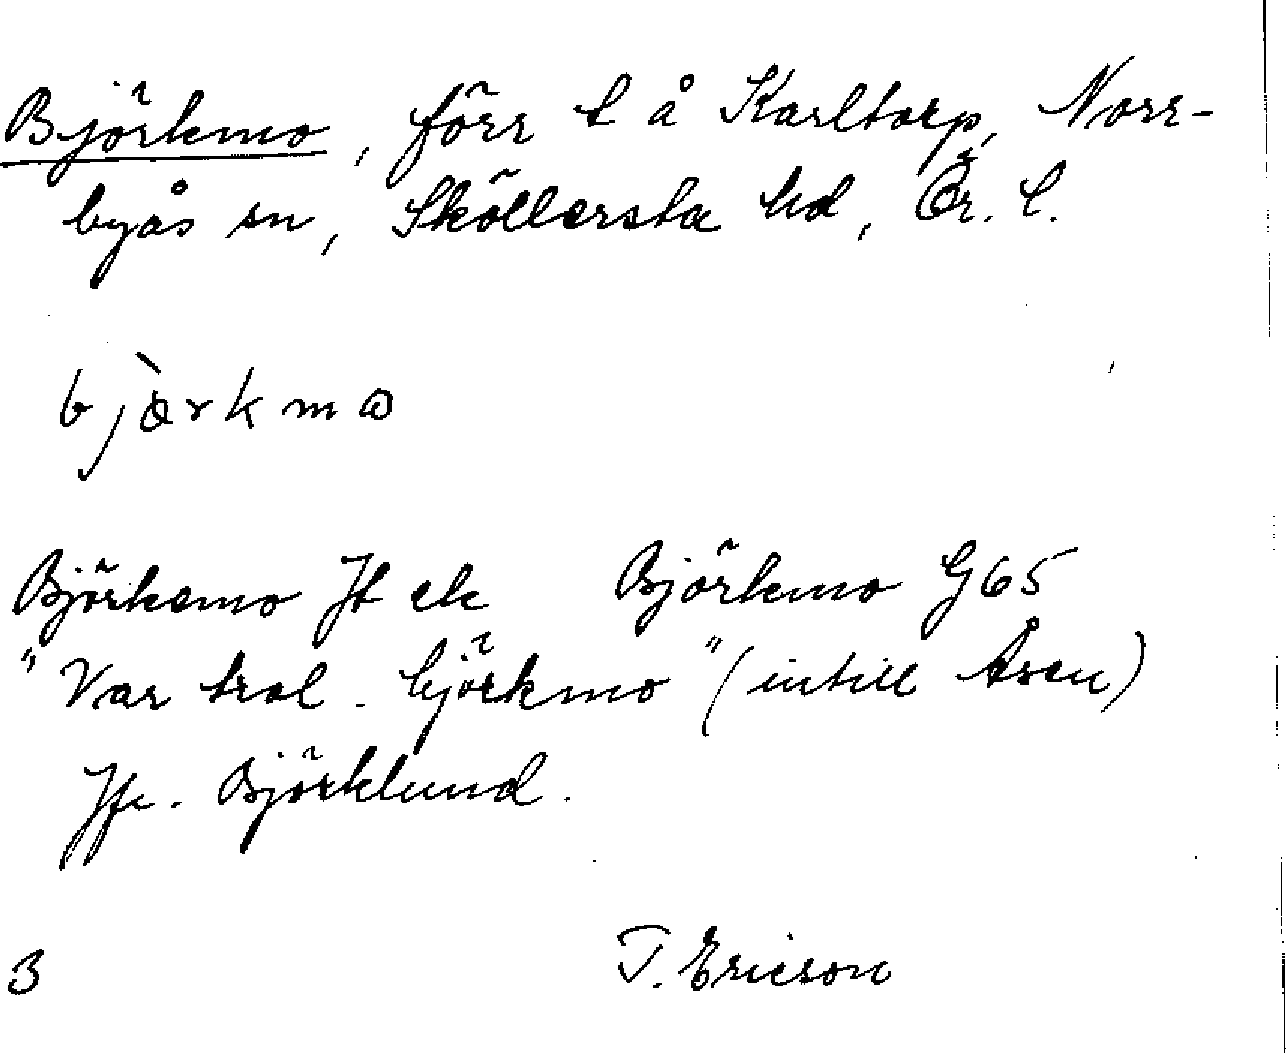 Björkmo, förr t å Karltorp, Norr-
byås sn, Sköllersta hd, Ör. l.
bjærkmω
Björkemo Jt ek Björkmo G65
"Var trol. björkmo" (intill Åsen)
Jfr. Björklund.
3 T. Ericson